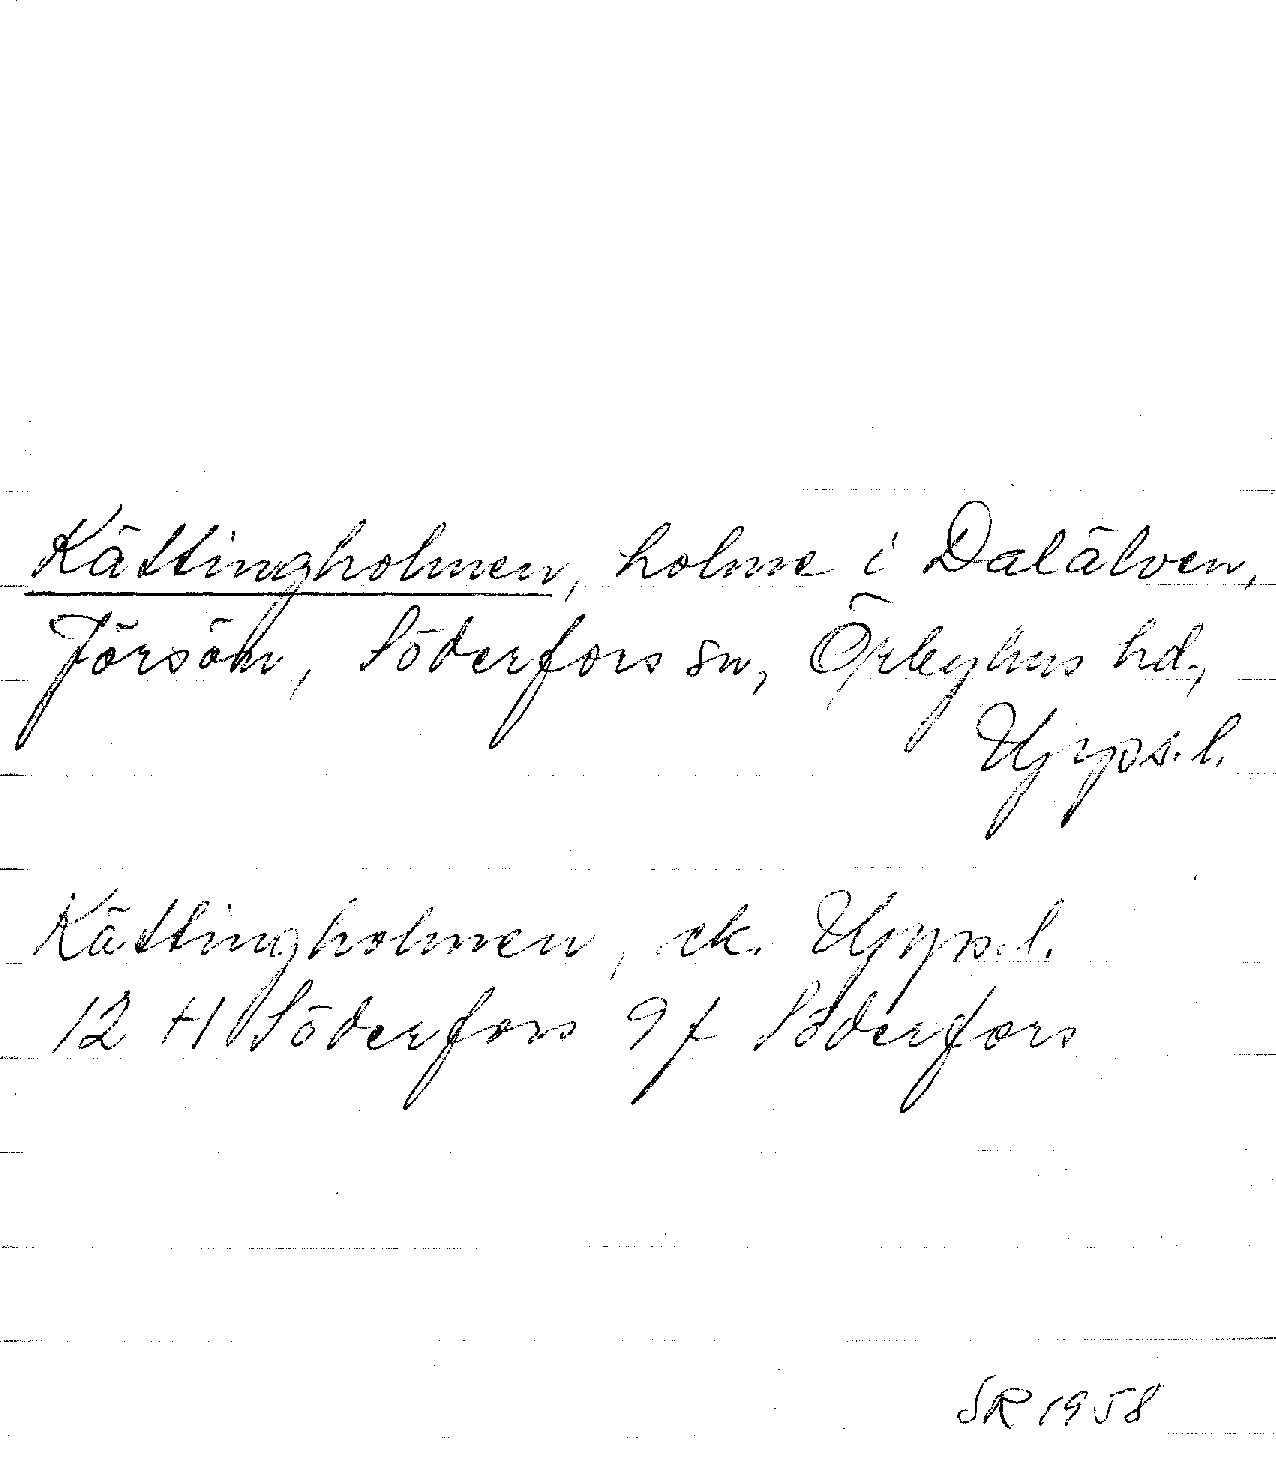 Kättingholmen, holme i Dalälven,
Jörsön, Söderfors sn, Örbyhus hd,
Upps. l.
Kättingholmen, ek. Upps. l.
12 H Söderfors 9f Söderfors
SR 1958